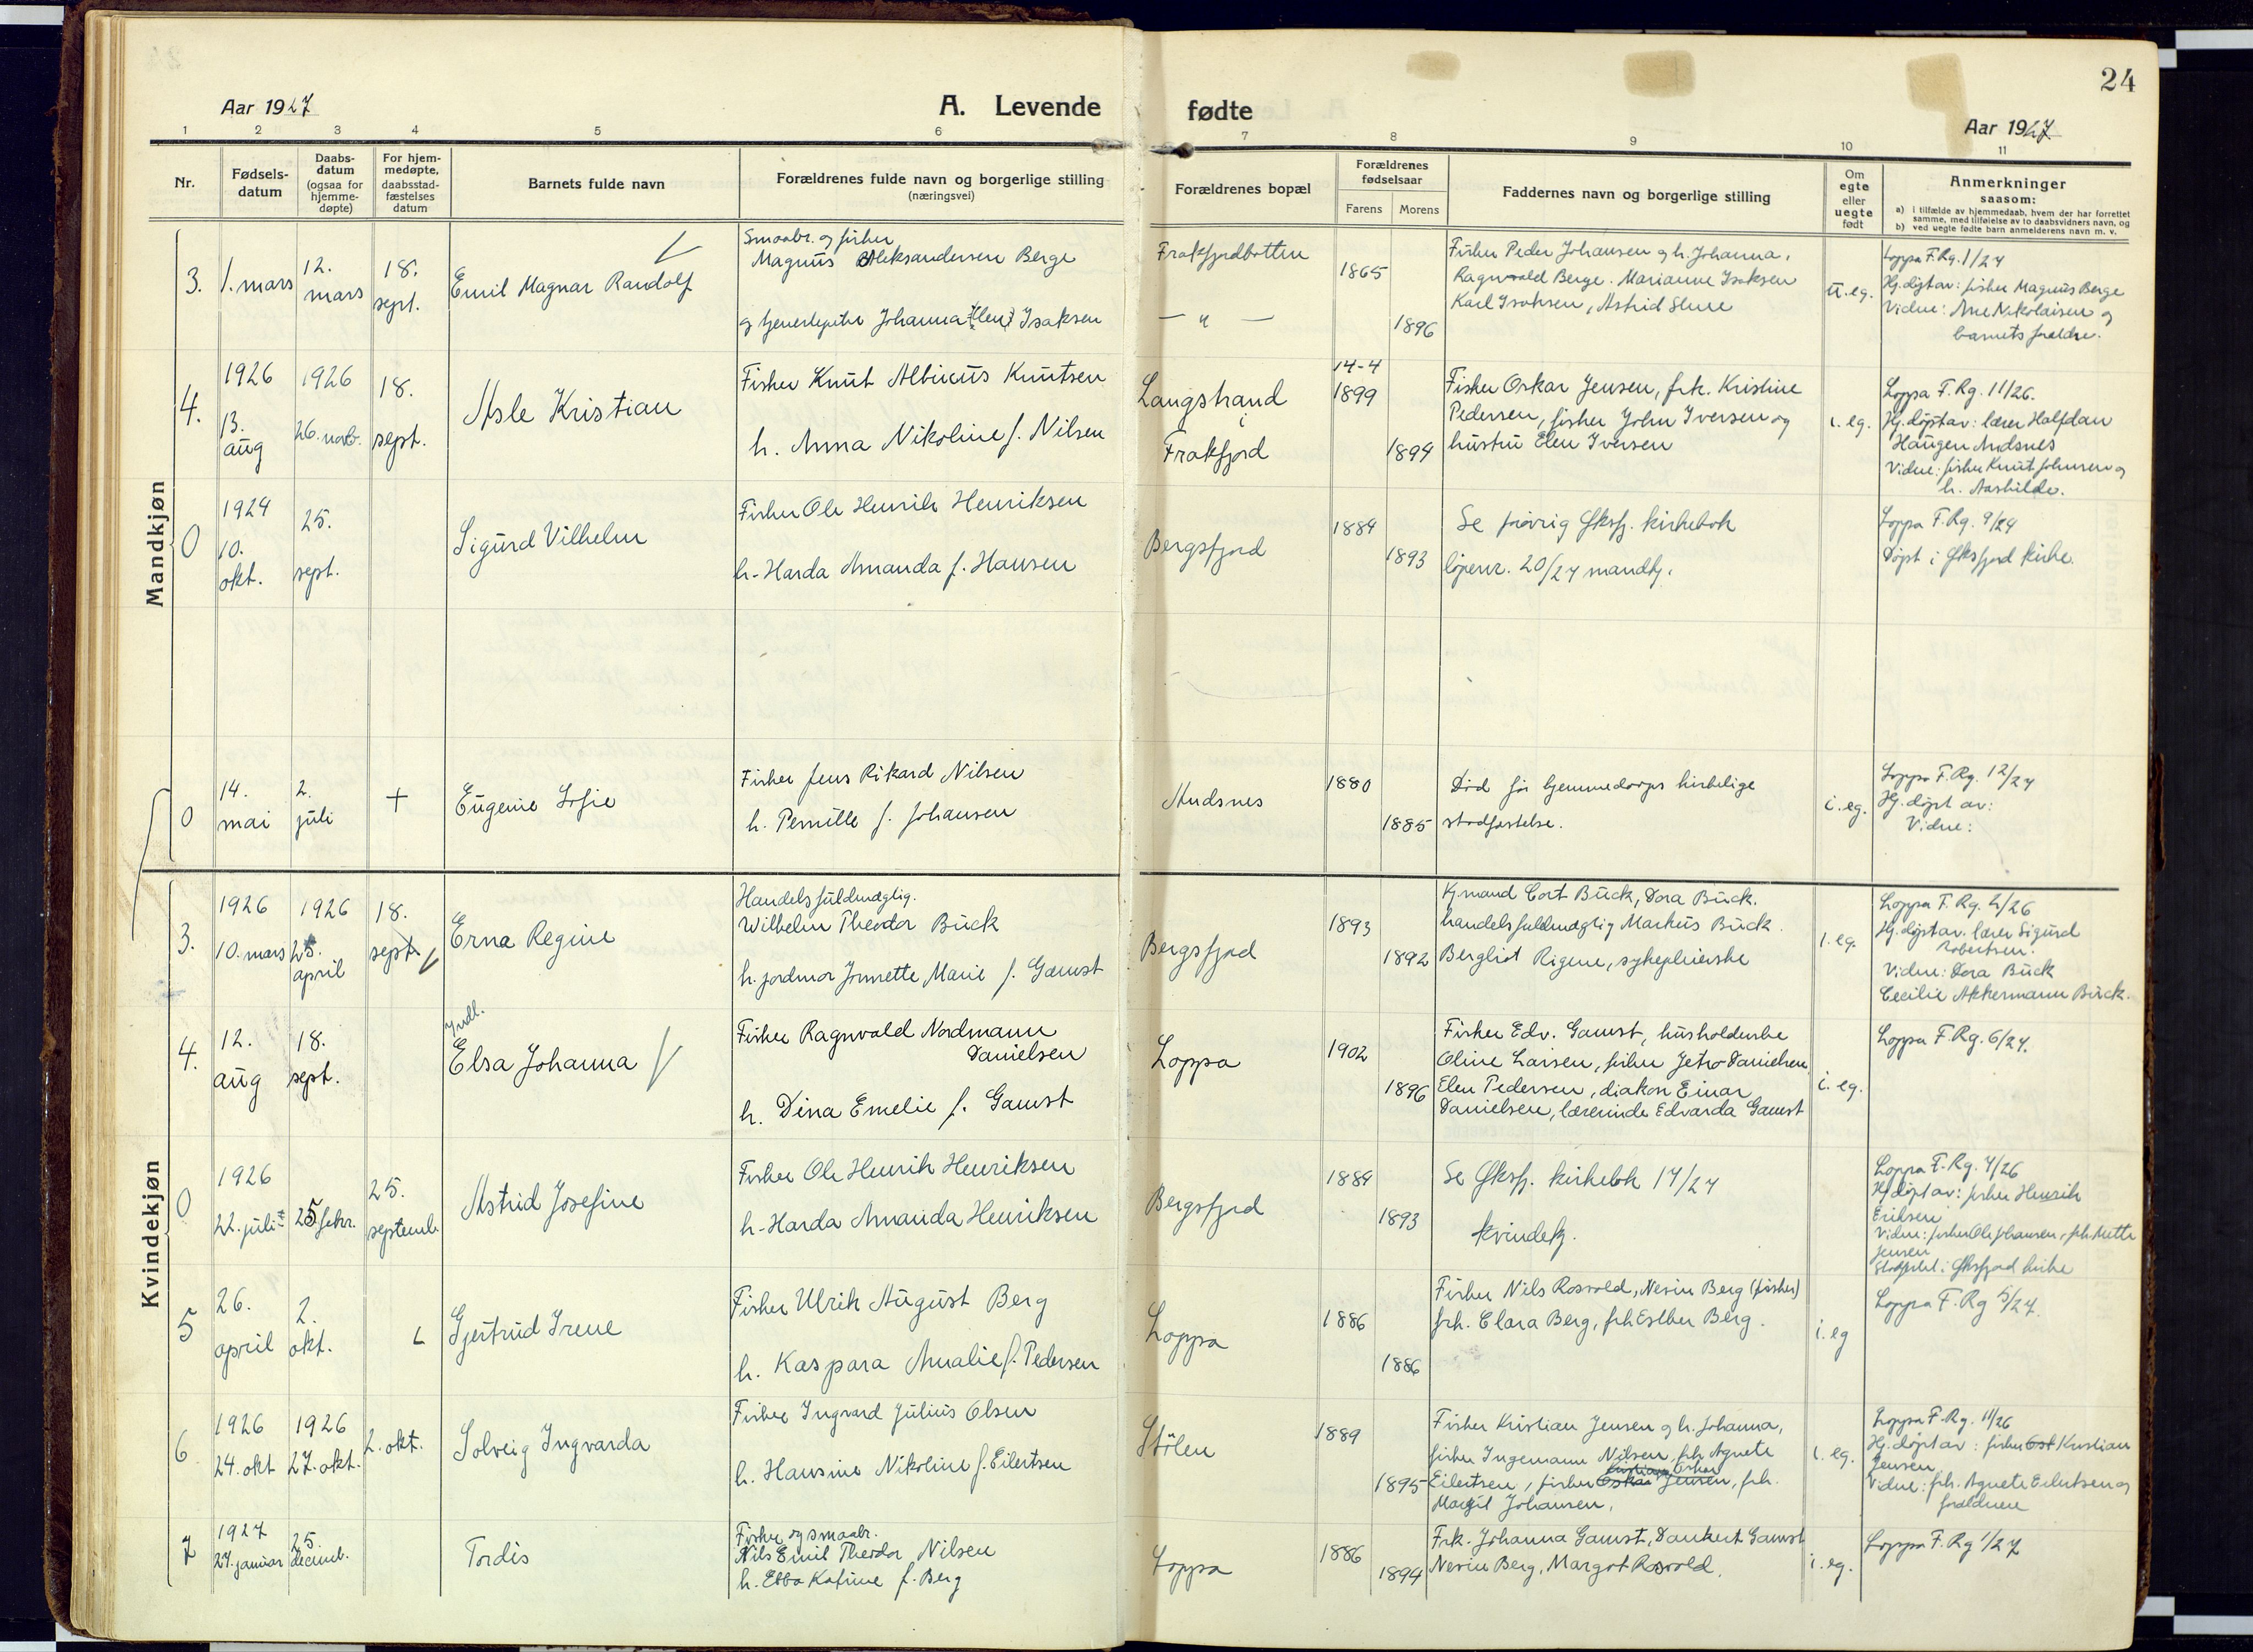 24
Aar 1927
A. Levende fødte
Aar 1927
1 2 3 4 5 6 7 8 9 10 11
Nr.
Fødsels-
datum
Daabs-
datum
(ogsaa for
hjemme-
døpte)
For hjem-
medøpte,
daabsstad-
fæstelses
datum
Barnets fulde navn
Forældrenes fulde navn og borgerlige stilling
(næringsvei)
Forældrenes bopæl
Forældrenes
fødselsaar
Farens Morens
Faddernes navn og borgerlige stilling
Om
egte
eller
uegte
født
Anmerkninger
saasom:
a) i tilfælde av hjemmedaab, hvem der har forrettet
samme, med tilføielse av to daabsvidners navn, og
b) ved uegte fødte barn anmelderens navn m. v.
Mandkjøn
3.
1. mars
12.
mars
18.
sept.
Emil Magnar Randolf
Smaabr. og fisker
Magnus Aleksandersen Berge
Johanna Isaksen
Frakfjordbotten
— " —
1865
1896
Fisker Peder Johansen og h. Johanna,
Ragnvald Berge. Marianne Isaksen
Karl Isaksen, Astrid
u. eg.
Loppa F. Rg. 1/27
Hj. døpt av: fisker Magnus Berge
Vidne: Ane Nikolaisen og
barnets foreldre.
4.
1926
13.
aug
1926
26. novb.
18.
sept.
Asle Kristian
Fisker Knut Albinus Knutsen
h. Anna Nikoline f. Nilsen
Langstrand
i
Frakfjord
14-4
1899
1894
Fisker Oskar Jensen, frk. Kristine
Pedersen, fisker John Iversen og
hustru Elen Iversen
i. eg.
Loppa F. Rg. 11/26.
Hj. døpt av: lærer Halfdan
Haugen Andsnes
Vidne: fisker Knut Johnsen og
h. Aashilde.
0
1924
10.
okt.
25.
sept.
Sigurd Vilhelm
Fisker Ole Henrik Henriksen
h. Harda Amanda f. Hansen
Bergsfjord
1884
1893
Se forøvrig Øksfj. kirkebok
løpenr. 20/27 mandkj.
Loppa F. Rg. 9/24
Døpt i Øksfjord kirke.
0
14.
mai
2.
juli
+
Eugenie Sofie
Fisker Jens Rikard Nilsen
h. Pernille f. Johansen
Andsnes
1880
1885
Død før hjemmedaaps kirkelige
stadfæstelse.
i. eg.
Loppa F. Rg. 12/27
Hj. døpt av:
Vidne:
Kvindekjøn
3.
1926
10. mars
1926
25.
april
18.
sept.
Erna Regine
Handelsfuldmægtig.
Wilhelm Theodor Buck
h. jordmor Jonnette Marie f. Gamst
Bergsfjord
1893
1892
Kjmand Cort Buck, Dora Buck.
handelsfuldmægtig Markus Buck.
Bergliot Rigene, sykepleierske
i. eg.
Loppa F. Rg. 2/26
Hj. døpt av. lærer Sigurd
Robertsen.
Vidne: Dora Buck
Cecilie Akkermann Buck.
4.
12.
aug
18.
sept.
Indl.
Elsa Johanna
Fisker Ragnvald Nordmann
Danielsen
h. Dina Emelie f. Gamst
Loppa
1902
1896
Fisker Edv. Gamst, husholderske
Oline Larsen, fisker Jetro Danielsen
Elen Pedersen, diakon Einar
Danielsen, lærerinde Edvarda Gamst
i. eg.
Loppa F. Rg. 6/27.
0
1926
22. juli
25 febr.
25.
septemb.
Astrid Josefine
Fisker Ole Henrik Henriksen
h. Harda Amanda Henriksen
Bergsfjord
1884
1893
Se Øksfj. kirkebok 17/27
kvindekj.
Loppa F. Rg. 7/26
Hj døpt av: fisker Henrik
Eriksen
Vidne: fisker Ole Johansen, frk. Mette
Jensen
Stadfæstet i Øksfjord kirke
5
26.
april
2.
okt.
Gjertrud Irene
Fisker Ulrik August Berg
h. Kaspara Amalie f. Pedersen
Loppa
1886
1886
Fisker Nils Rosvold, Nerin Berg (fisker)
frk. Clara Berg, frk Esther Berg.
i. eg
Loppa F. Rg 5/27.
6
1926
24. okt
1926
27. okt.
2. okt.
Solveig Ingvarda
Fisker Ingvard Julius Olsen
h. Hansine Nikoline f. Eilertsen
Stølen
1889
1895
Fisker Kristian Jensen og h. Johanna,
fisker Ingemann Nilsen, frk Agnete
Eilertsen, fisker Oskar Jensen, frk.
Margit Johansen.
i. eg.
Loppa F. Rg. 11/26
Hj. døpt av: fisker Kristian
Jensen
Vidne: frk. Agnete Eilertsen og
foreldrene
7
1927
27. januar
25.
decemb.
Tordis
Fisker og smaabr.
Nils Emil Theodor Nilsen
h. Ebba Kafine f. Berg
Loppa
1886
1894
Frk. Johanna Gamst, Dankert Gamst
Nerin Berg, Margot Rosvold.
i. eg.
Loppa F. Rg 1/27